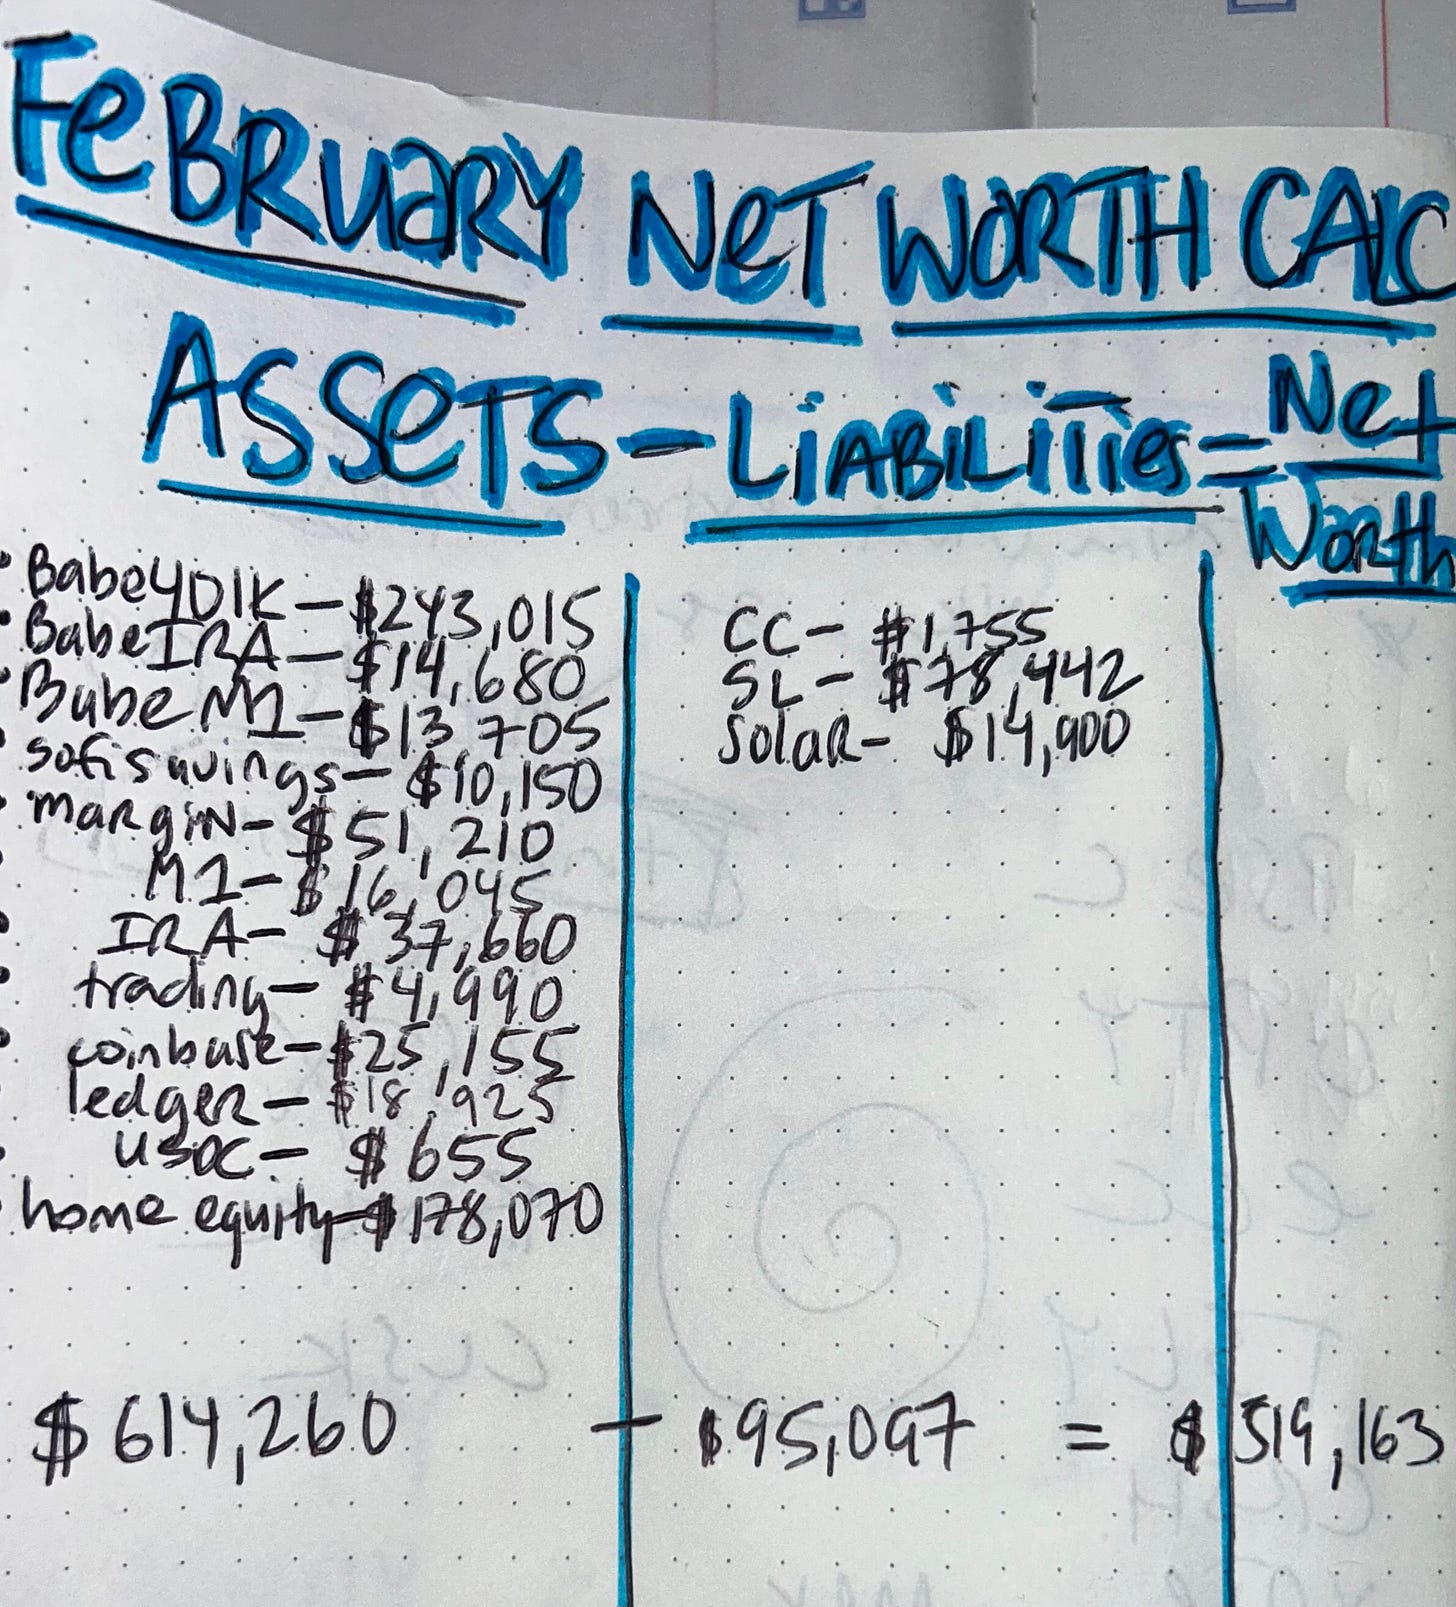 FeBRUaRY NeT WORTH CALC
ASSeTS - LiABiLiTies = Net Worth
• Babe401K - $243,015
• BabeIRA - $14,680
• Babe M1 - $13,705
• sofi savings - $10,150
• margin - $51,210
• M1 - $16,045
• IRA - $37,660
• trading - $4,990
• coinbase - $25,155
• ledger - $18,925
• USDC - $655
• home equity - $178,070
CC - $1,755
SL - $78,442
Solar - $14,900
$614,260 - $95,097 = $519,163